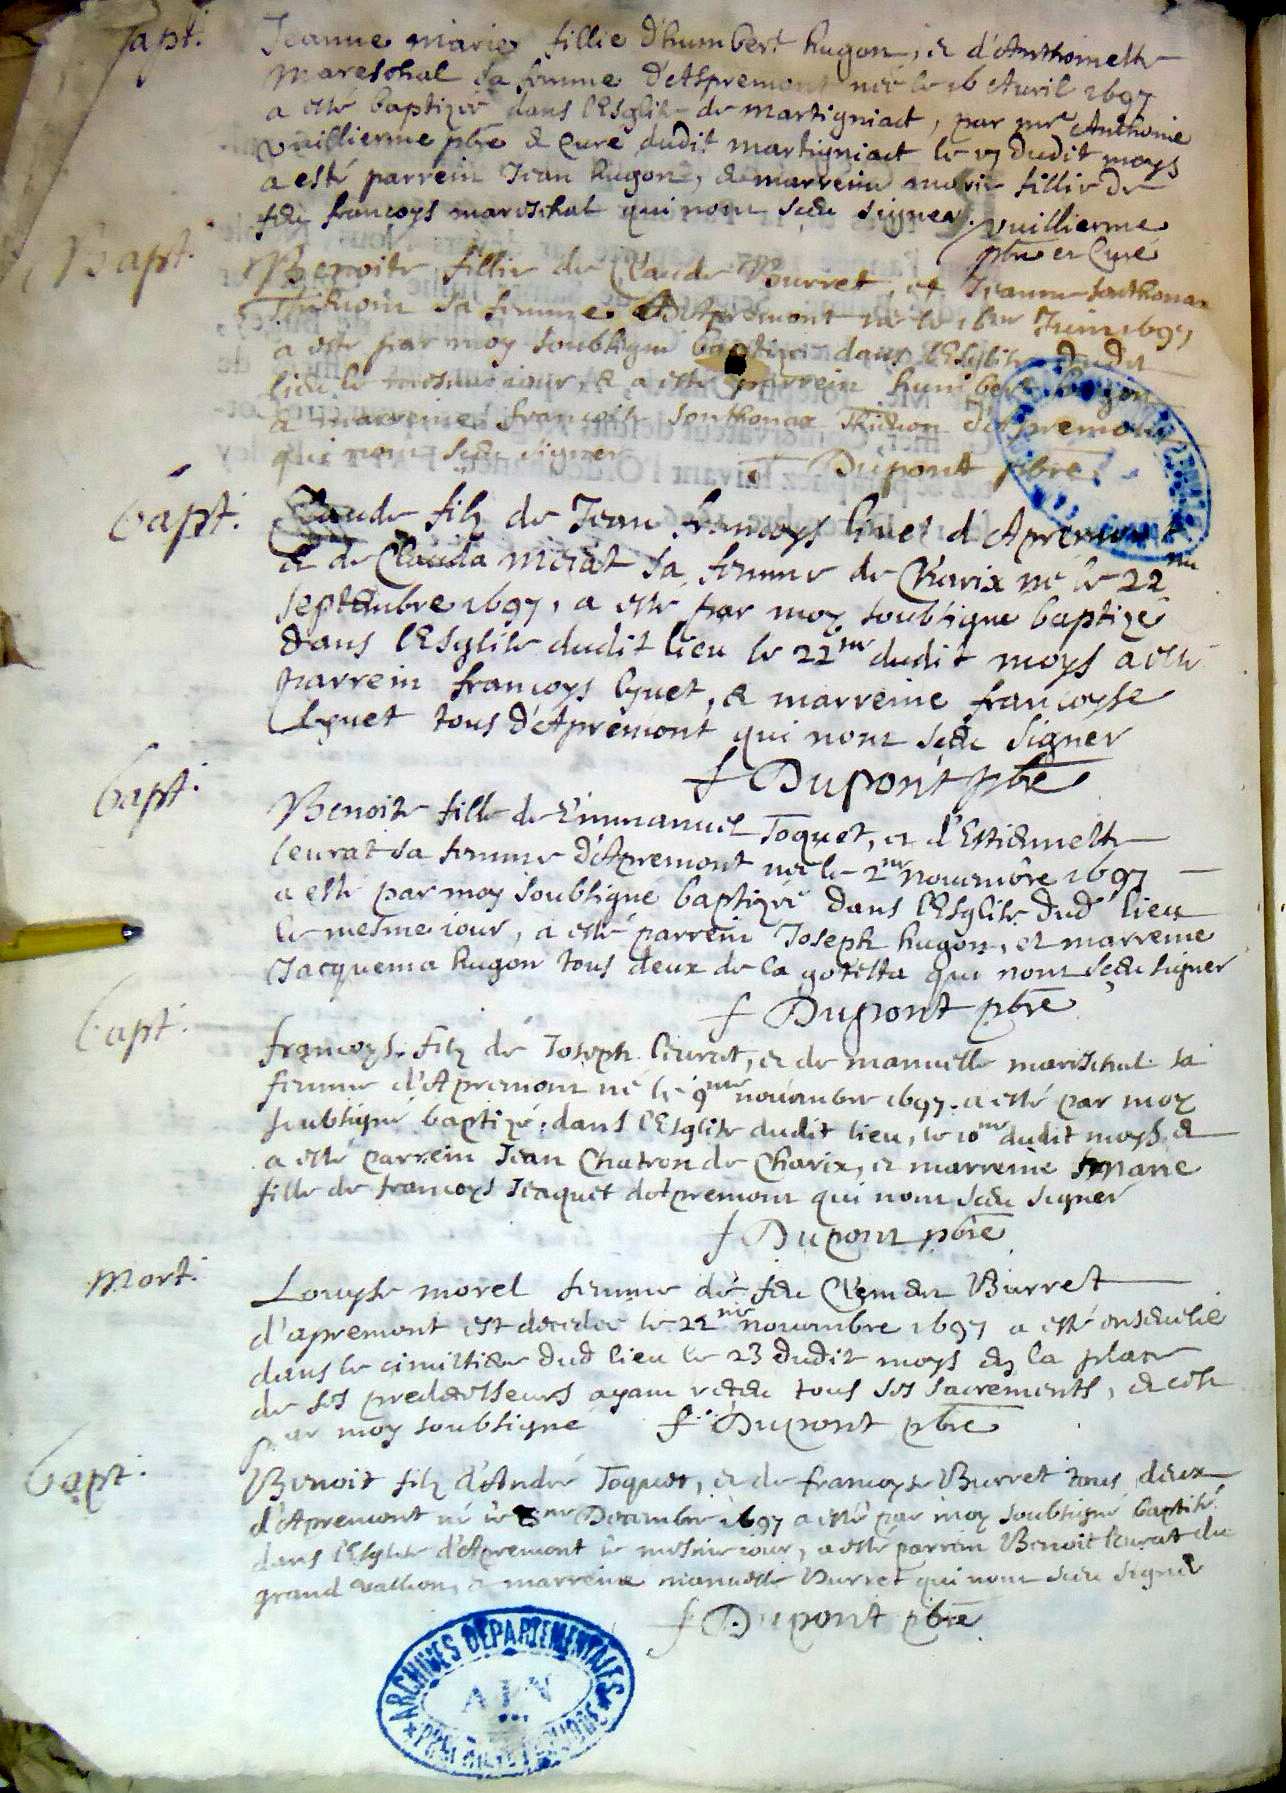 Bapt.
Jeanne marie fillie d'humbert hugon, et d'Anthoinette
mareschal sa femme d'Aspremont née le 16 Auril 1697
a esté baptizée dans l'Esglise de martigniact, par mre Anthoine
vuillierme pbre & curé dudit martigniact le 17 dudit moys
a esté parrein Jean hugon, & marreine marie fillie de
feu francoys mareschal qui nont sceu signer. vuillierme
pbre et Curé
Bapt.
Benoite fillie de Claude Burret, et Jeanne Jonthonax
sa femme d'Apremont née le Juin 1697
a esté par moy soubsigné baptizée dans l'Esglise dudit
lieu le mesme iour, & a esté parrein humbert hugon
& marreine francoise Jonthonax d'Aspremont
qui nont sceu signer
f Dupont pbre
bapt.
Claude filz de Jean francoys liuet d'Apremont
& de Clauda mérat sa femme de Charix né le 22me
septembre 1697, a esté par moy soubsigné baptizé
dans l'Esglise dudit lieu le 22me dudit moys a esté
parrein francoys lyuet, & marreine francoyse
lyuet tous d'Apremont qui nont sceu signer
f Dupont pbre
bapt.
Benoite fille de Emmanuel Toquet, et d'Estiennette
leurat sa femme d'Apremont née le 2me nouembre 1697
a esté par moy soubsigné baptizée dans l'Esglise dud lieu
le mesme iour, a esté parrein Joseph hugon, et marreine
Jacquema hugon tous deux de la gotetta qui nont sceu signer
f Dupont pbre
bapt.
francoys filz de Joseph leurat, et de manuelle mareschal sa
femme d'Apremont né le 9me nouembre 1697. a esté par moy
soubsigné baptizé, dans l'Esglise dudit lieu, le 10me dudit moys &
a esté parrein Jean Chatron de Charix, et marreine marie
fille de francoys Jeaquet d'Apremont qui nont sceu signer
f Dupont pbre
mort.
Louyse morel femme de feu Clement Burret
d'apremont est decedee le 22me nouembre 1697 a esté enseuelie
dans le cimistiere dud lieu le 23 dudit moys en la place
de ses predecesseurs ayant receu tous ses sacrements, & ce
par moy soubsigné f Dupont pbre
bapt.
Benoit filz d'André Toquet, et de francoyse Burret tous deux
d'Apremont né le 8me Decembre 1697 a esté par moy soubsigné baptisé
dans l'Esglise d'Apremont le mesme iour, a esté parrein Benoit leurat du
grand vallion, & marreine manuelle Burret qui nont sceu signé
f Dupont pbre
ARCHIVES DEPARTEMENTALES
AIN